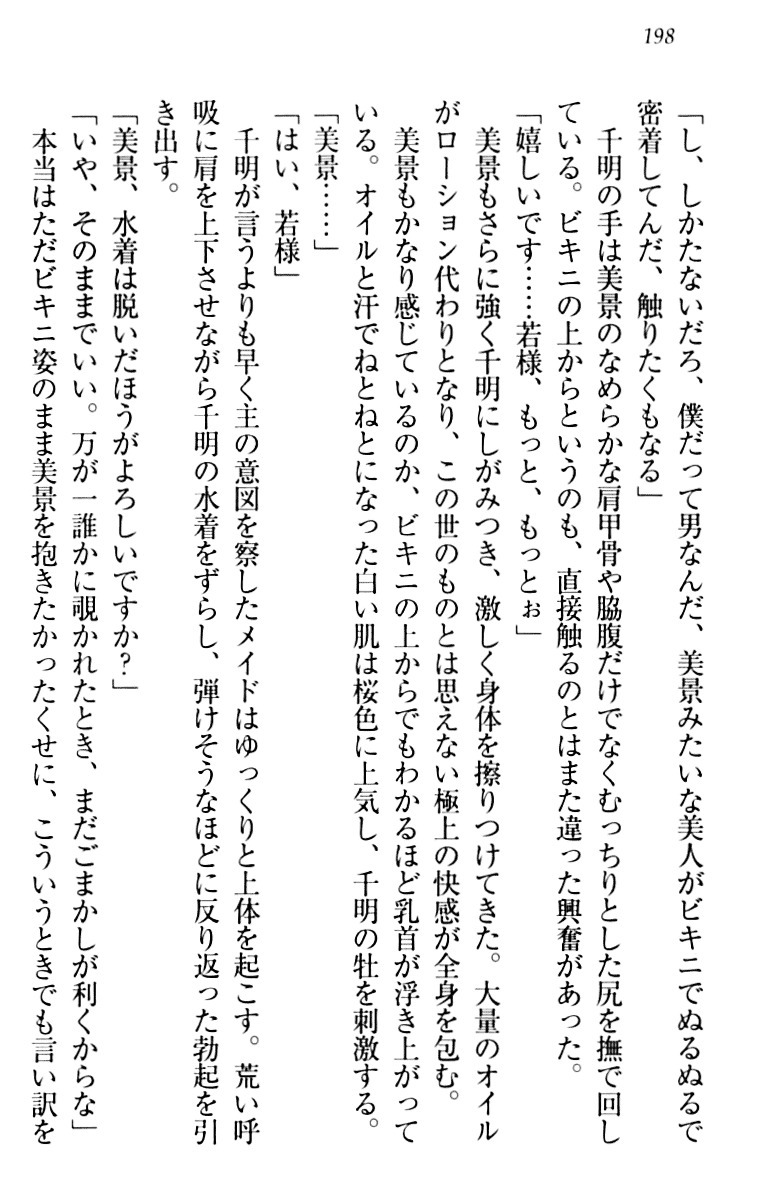 198
「し、しかたないだろ、僕だって男なんだ、美景みたいな美人がビキニでぬるぬるで
密着してんだ、触りたくもなる」
千明の手は美景のなめらかな肩甲骨や脇腹だけでなくむっちりとした尻を撫で回し
ている。ビキニの上からというのも、直接触るのとはまた違った興奮があった。
「嬉しいです……若様、もっと、もっとぉ」
美景もさらに強く千明にしがみつき、激しく身体を擦りつけてきた。大量のオイル
がローション代わりとなり、この世のものとは思えない極上の快感が全身を包む。
美景もかなり感じているのか、ビキニの上からでもわかるほど乳首が浮き上がって
いる。オイルと汗でねとねとになった白い肌は桜色に上気し、千明の牡を刺激する。
「美景……」
「はい、若様」
千明が言うよりも早く主の意図を察したメイドはゆっくりと上体を起こす。荒い呼
吸に肩を上下させながら千明の水着をずらし、弾けそうなほどに反り返った勃起を引
き出す。
「美景、水着は脱いだほうがよろしいですか?」
「いや、そのままでいい。万が一誰かに覗かれたとき、まだごまかしが利くからな」
本当はただビキニ姿のまま美景を抱きたかったくせに、こういうときでも言い訳を